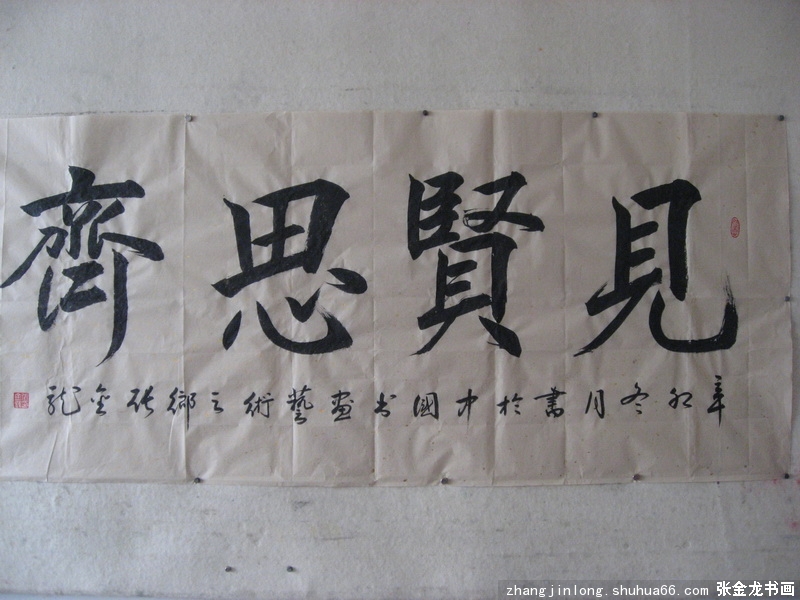 見賢思齊
辛卯冬月書於中國书畫藝術之鄉张金龍
zhangjinlong.shuhua66.com 张金龙书画